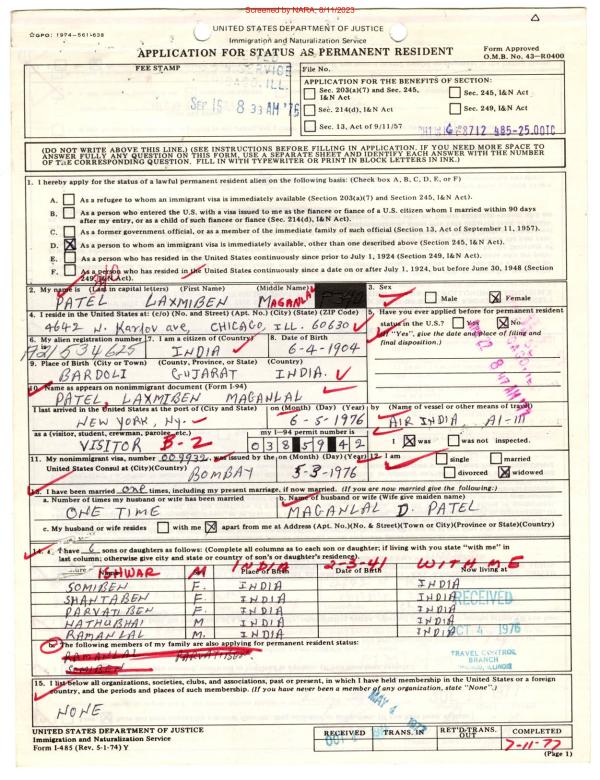 Screened by NARA, 8/11/2023
☆GPO: 1974-561-638
UNITED STATES DEPARTMENT OF JUSTICE
Immigration and Naturalization Service
APPLICATION FOR STATUS AS PERMANENT RESIDENT
Form Approved
O.M.B. No. 43-R0400
FEE STAMP
SEP 15 8 33 AM '76
File No.
APPLICATION FOR THE BENEFITS OF SECTION:
Sec. 203(a)(7) and Sec. 245, I&N Act
Sec. 245, I&N Act
Sec. 214(d), I&N Act
Sec. 249, I&N Act
Sec. 13, Act of 9/11/57
8712 485-25.00TC
(DO NOT WRITE ABOVE THIS LINE.) (SEE INSTRUCTIONS BEFORE FILLING IN APPLICATION. IF YOU NEED MORE SPACE TO
ANSWER FULLY ANY QUESTION ON THIS FORM, USE A SEPARATE SHEET AND IDENTIFY EACH ANSWER WITH THE NUMBER
OF THE CORRESPONDING QUESTION. FILL IN WITH TYPEWRITER OR PRINT IN BLOCK LETTERS IN INK.)
1. I hereby apply for the status of a lawful permanent resident alien on the following basis: (Check box A, B, C, D, E, or F)
A. As a refugee to whom an immigrant visa is immediately available (Section 203(a)(7) and Section 245, I&N Act).
B. As a person who entered the U.S. with a visa issued to me as the fiancee or fiance of a U.S. citizen whom I married within 90 days
after my entry, or as a child of such fiancee or fiance (Sec. 214(d), I&N Act).
C. As a former government official, or as a member of the immediate family of such official (Section 13, Act of September 11, 1957).
D. X As a person to whom an immigrant visa is immediately available, other than one described above (Section 245, I&N Act).
E. As a person who has resided in the United States continuously since prior to July 1, 1924 (Section 249, I&N Act).
F. As a person who has resided in the United States continuously since a date on or after July 1, 1924, but before June 30, 1948 (Section
249, I&N Act).
2. My name is (Last in capital letters) (First Name) (Middle Name)
PATEL LAXMIBEN MAGANLAL
3. Sex
Male X Female
4. I reside in the United States at: (c/o) (No. and Street) (Apt. No.) (City) (State) (ZIP Code)
4642 N. Karlov ave, CHICAGO, ILL. 60630
5. Have you ever applied before for permanent resident
status in the U.S.? Yes X No
(If "Yes", give the date and place of filing and
final disposition.)
6. My alien registration number
A21534625
7. I am a citizen of (Country)
INDIA
8. Date of Birth
6-4-1904
9. Place of Birth (City or Town) (County, Province, or State) (Country)
BARDOLI GUJARAT INDIA.
10. Name as appears on nonimmigrant document (Form I-94)
PATEL, LAXMIBEN MAGANLAL
I last arrived in the United States at the port of (City and State)
NEW YORK, NY.
on (Month) (Day) (Year)
6-5-1976
by (Name of vessel or other means of travel)
AIR INDIA AI-111
as a (visitor, student, crewman, parolee, etc.)
VISITOR B-2
my I-94 permit number is
038 59 42
I X was was not inspected.
11. My nonimmigrant visa, number 009932, was issued by the United States Consul at (City)(Country)
BOMBAY
on (Month) (Day) (Year)
5-3-1976
12. I am single married
divorced X widowed
13. I have been married one times, including my present marriage, if now married. (If you are now married give the following:)
a. Number of times my husband or wife has been married
ONE TIME
b. Name of husband or wife (Wife give maiden name)
MAGANLAL D. PATEL
c. My husband or wife resides with me X apart from me at Address (Apt. No.)(No. & Street)(Town or City)(Province or State)(Country)
14. a. I have 6 sons or daughters as follows: (Complete all columns as to each son or daughter; if living with you state "with me" in
last column; otherwise give city and state or country of son's or daughter's residence).
Place of Birth Date of Birth Now living at
ISHWAR M INDIA 2-3-41 WITH ME
SOMIBEN F. INDIA INDIA
SHANTABEN F. INDIA INDIA
PARVATIBEN F. INDIA INDIA
NATHUBHAI M INDIA INDIA
RAMANLAL M. INDIA INDIA
RECEIVED
OCT 4 1976
TRAVEL CONTROL
BRANCH
CHICAGO, ILLINOIS
b. The following members of my family are also applying for permanent resident status:
RAMANLAL PARVATIBEN
SOMIBEN
15. I list below all organizations, societies, clubs, and associations, past or present, in which I have held membership in the United States or a foreign
country, and the periods and places of such membership. (If you have never been a member of any organization, state "None".)
NONE
MAY 4 1977
UNITED STATES DEPARTMENT OF JUSTICE
Immigration and Naturalization Service
Form I-485 (Rev. 5-1-74) Y
RECEIVED
TRANS. IN
RET'D-TRANS. OUT
COMPLETED
7-11-77
(Page 1)